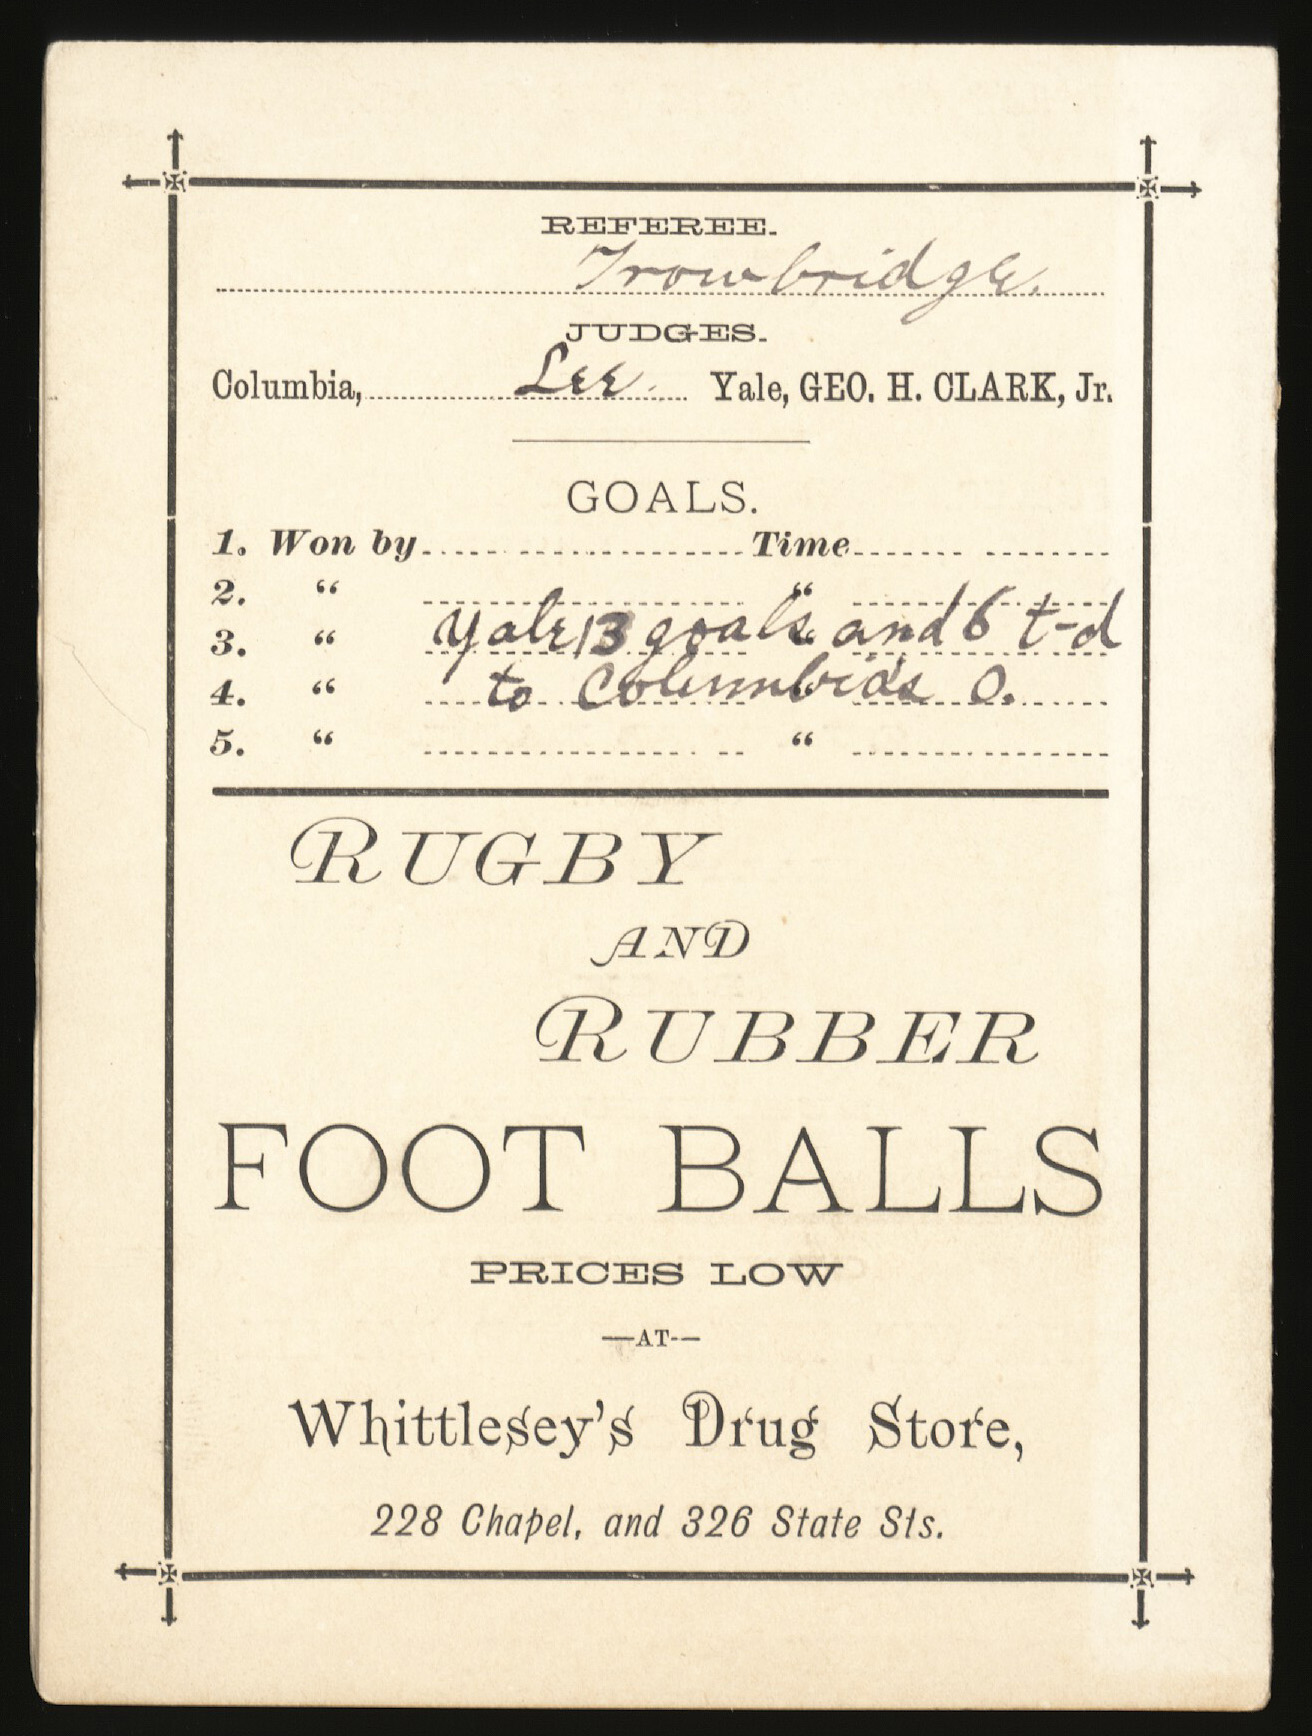 REFEREE.
Trowbridge.
JUDGES.
Columbia, Lee. Yale, GEO. H. CLARK, Jr.
GOALS.
1. Won by Time
2. “ “
3. “ Yale 13 goals “ and 6 t-d
4. “ to Columbia's “ 0.
5. “ “
RUGBY
AND
RUBBER
FOOT BALLS
PRICES LOW
—AT—
Whittlesey's Drug Store,
228 Chapel, and 326 State Sts.